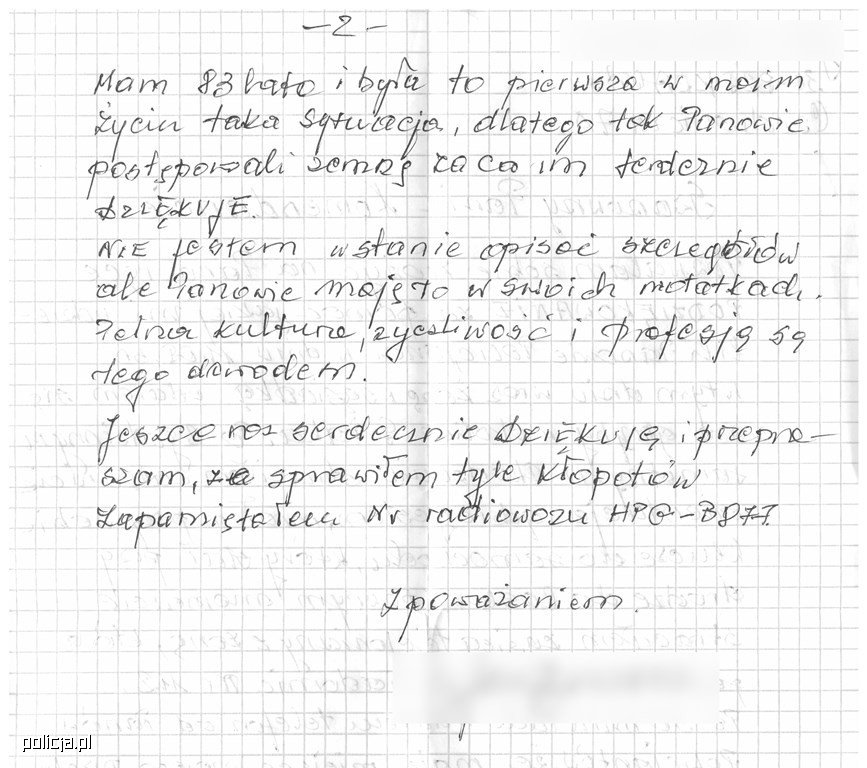 - 2 -
Mam 83 lata i była to pierwsza w moim
życiu taka sytuacja, dlatego tak Panowie
postępowali zemną za co im serdecznie
DZIĘKUJĘ.
NIE jestem wstanie opisać szczegółów
ale Panowie mają to w swoich notatkach.
Pełna kultura, życzliwość i profesją są
tego dowodem.
Jeszcze raz serdecznie DZIĘKUJĘ i przepra-
szam, że sprawiłem tyle kłopotów
Zapamiętałem Nr radiowozu HPG-B877.
Z poważaniem.
policja.pl